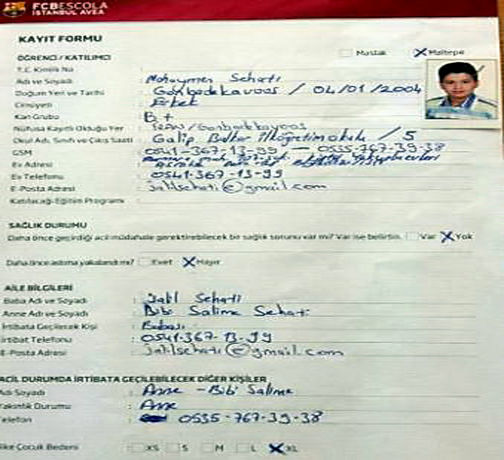 FCBESCOLA
ISTANBUL AVEA
KAYIT FORMU
Mastak X Maltepe
ÖĞRENCİ / KATILIMCI
T.C. Kimlik No
Adı ve Soyadı : Mohaymen Sehati
Doğum Yeri ve Tarihi : Gonbadekavoos / 04/01/2004
Cinsiyeti : Erkek
Kan Grubu : B+
Nüfusa Kayıtlı Olduğu Yer : İran/Gonbadekavoos
Okul Adı, Sınıfı ve Çıkış Saati : Galip / 5
GSM : 0541-367-13-99 — 0535-767-39-38
Ev Adresi :
Ev Telefonu : 0541-367-13-99
E-Posta Adresi : jalilsehati@gmail.com
Katılacağı Eğitim Programı :
SAĞLIK DURUMU
Daha önce geçirdiği acil müdahale gerektirebilecek bir sağlık sorunu var mı? Var ise belirtin. Var X Yok
Daha önce astıma yakalandı mı? Evet X Hayır
AİLE BİLGİLERİ
Baba Adı ve Soyadı : Jalil Sehati
Anne Adı ve Soyadı : Bibi Salime Sehati
İrtibata Geçilecek Kişi : Babası
İrtibat Telefonu : 0541-367-13-99
E-Posta Adresi : jalilsehati@gmail.com
ACİL DURUMDA İRTİBATA GEÇİLEBİLECEK DİĞER KİŞİLER
Adı Soyadı : Anne - Bibi Salime
Yakınlık Durumu : Anne
Telefon : 0535-767-39-38
Nike Çocuk Bedeni : XS S M L X XL